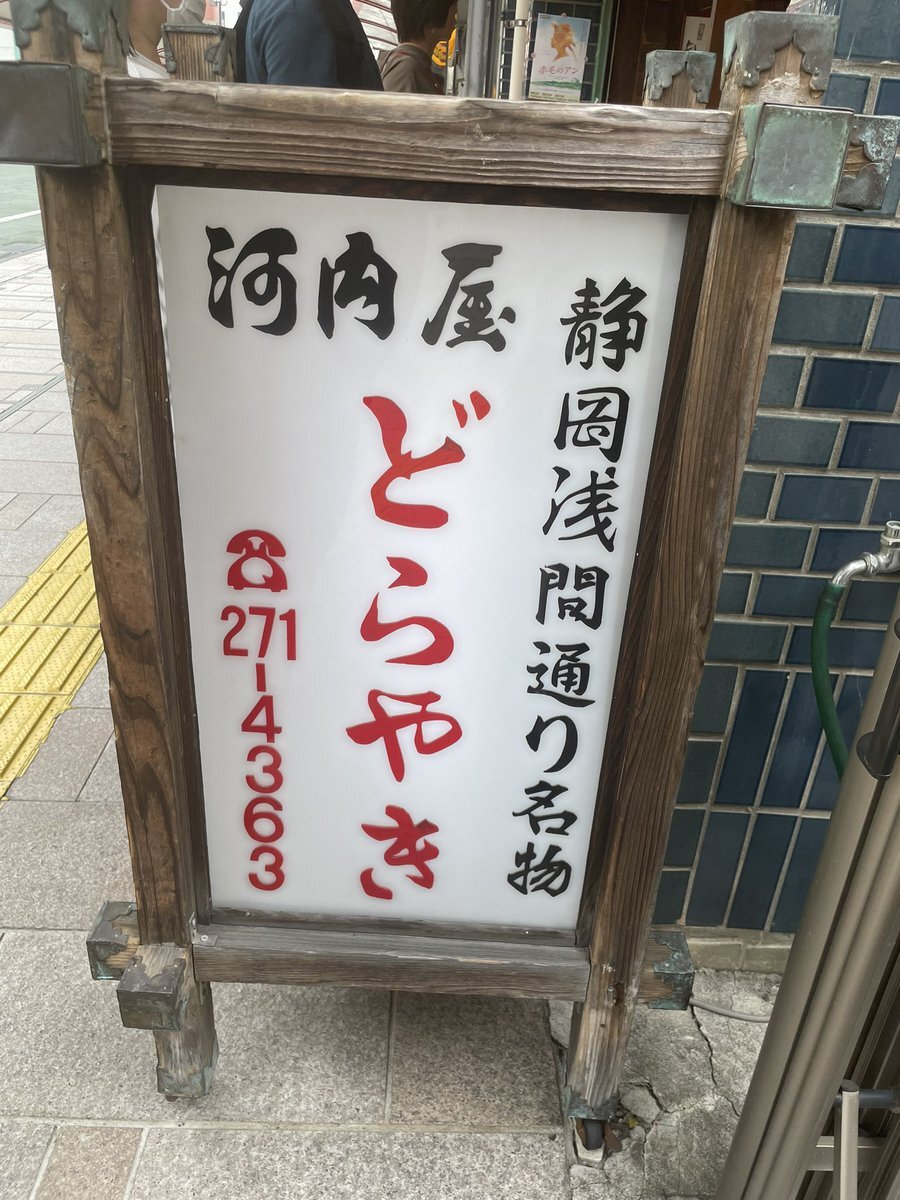 河内屋
静岡浅間通り名物
どらやき
☎271-4363
赤毛のアン